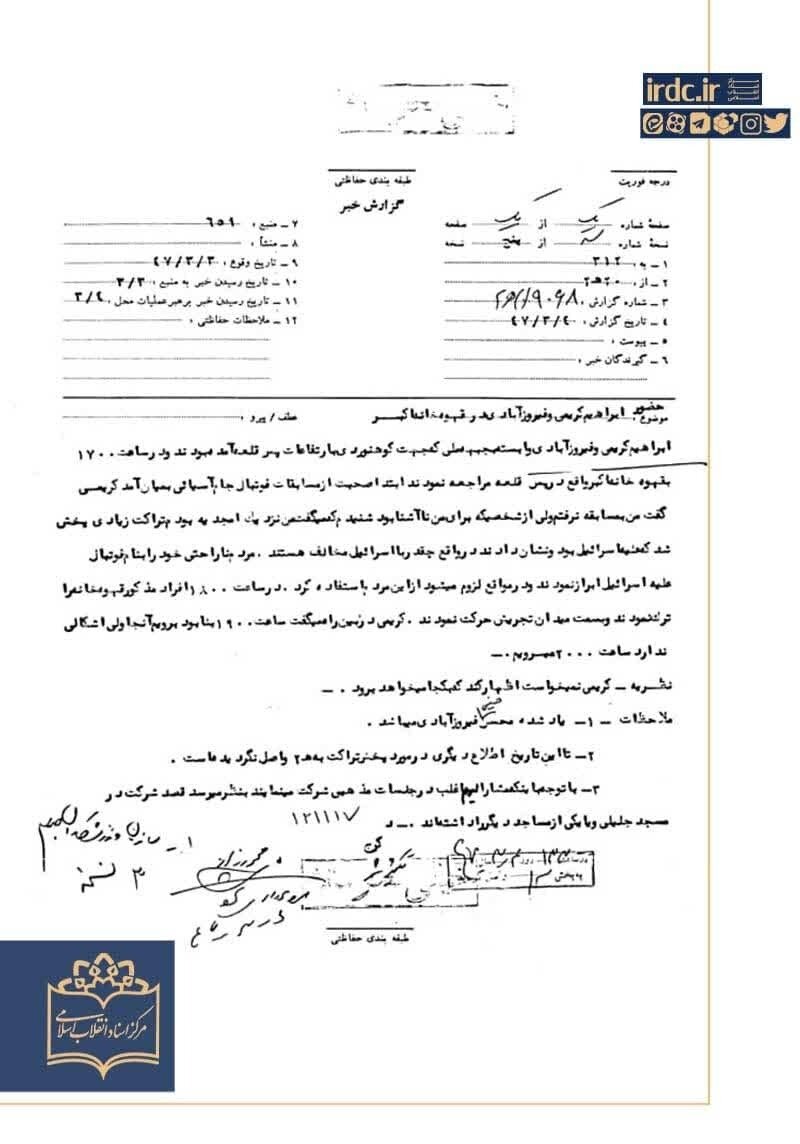 irdc.ir
مرکز اسناد انقلاب اسلامی
درجه فوریت
طبقه بندی حفاظتی
گزارش خبر
صفحهٔ شماره یک از یک صفحه
نسخهٔ شماره سه از پنج نسخه
۱ ـ به ، ۳۱۲
۲ ـ از ، ۲۰ ه‍ ۲
۳ ـ شماره گزارش ،
۴ ـ تاریخ گزارش ، ۴۷/۳/۴
۵ ـ پیوست ،
۶ ـ گیرندگان خبر ،
۷ ـ منبع ، ۶۵۹
۸ ـ منشأ ،
۹ ـ تاریخ وقوع ، ۴۷/۳/۳
۱۰ ـ تاریخ رسیدن خبر به منبع ، ۳/۳
۱۱ ـ تاریخ رسیدن خبر برهبر عملیات محل ، ۳/۴
۱۲ ـ ملاحظات حفاظتی ،
موضوع ، حضور ابراهیم کریمی و فیروزآبادی در قهوه خانه اکبر
عطف / پیرو ،
ابراهیم کریمی و فیروزآبادی وابسته بجبهه ملی که جهت کوهنوردی بارتفاعات پس قلعه آمده بودند ود رساعت ۱۷۰۰
بقهوه خانه اکبر واقع در پس قلعه مراجعه نمودند ابتدا صحبت از مسابقات فوتبال جام آسیائی بمیان آمد کریمی
گفت من بمسابقه نرفتم ولی از شخصیکه برای من ناآشنا بود شنیدم که میگفت من نزدیک امجدیه بودم تراکت زیادی پخش
شد که علیه اسرائیل بود ونشان دادند در واقع چقدر با اسرائیل مخالف هستند . مردم ناراحتی خود را بنام فوتبال
علیه اسرائیل ابراز نمودند ود رمواقع لزوم میشود از این مردم استفاده کرد . در ساعت ۱۸۰۰ افراد مذکور قهوه خانه را
ترک نمودند وبسمت میدان تجریش حرکت نمودند . کریمی در بین راه میگفت ساعت ۱۹۰۰ بنا بود برویم آنجا ولی اشکالی
ندارد ساعت ۲۰۰۰ میرویم . ـ
نظریه ـ کریمی نمیخواست اظهار کند که بکجا میخواهد برود . ـ
ملاحظات ـ ۱ـ یاد شده محسن فیروزآبادی میباشد .
۲ـ تا این تاریخ اطلاع دیگری در مورد پخش تراکت به ۲ه‍ واصل نگردیده است .
۳ـ با توجه باینکه مشارالیهم اغلب در جلسات مذهبی شرکت مینمایند بنظر میرسد قصد شرکت در
مسجد جلیلی ویا یکی از مساجد دیگر را داشته اند . ـ د
۱۲۱۱۱۷
۳ نسخه
طبقه بندی حفاظتی
مرکز اسناد انقلاب اسلامی